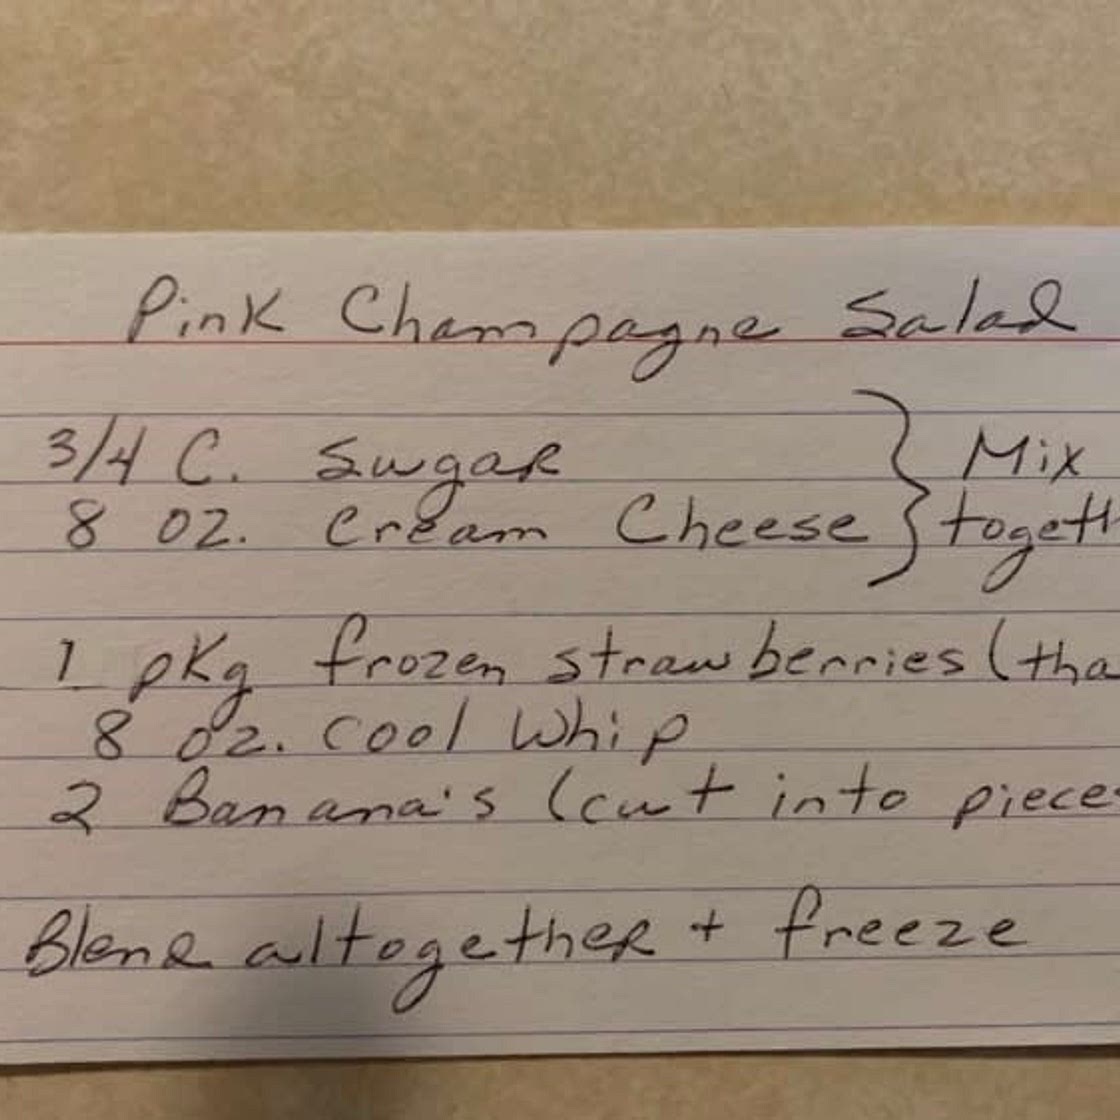 Pink Champagne Salad
3/4 C. Sugar } Mix
8 oz. Cream Cheese } togeth
1 pkg frozen strawberries (tha
8 oz. Cool Whip
2 Banana's (cut into pieces
Blend altogether + freeze